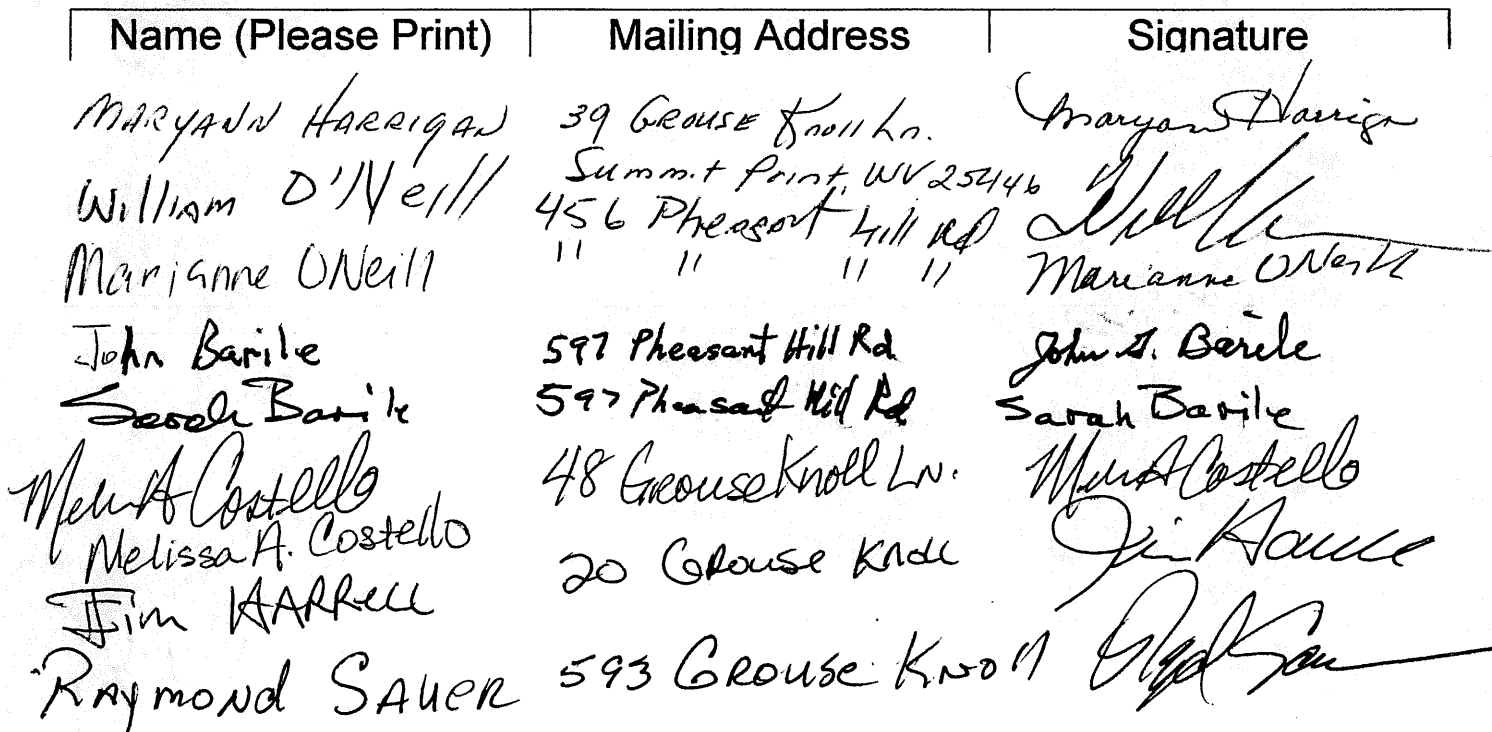 Name (Please Print) Mailing Address Signature
MARYANN HARRIGAN 39 GROUSE Knoll Ln. Maryann Harrigan
Summit Point, WV 25446
William O'Neill 456 Pheasant Hill Rd
Marianne ONeill " " " " Marianne ONeill
John Barile 597 Pheasant Hill Rd John G. Barile
Sarah Barile 597 Pheasant Hill Rd Sarah Barile
Costello 48 Grouse Knoll Ln. Costello
Melissa A. Costello
Jim HARRELL 20 GROUSE Knoll Jim
RAYMOND SAUER 593 GROUSE KNOll